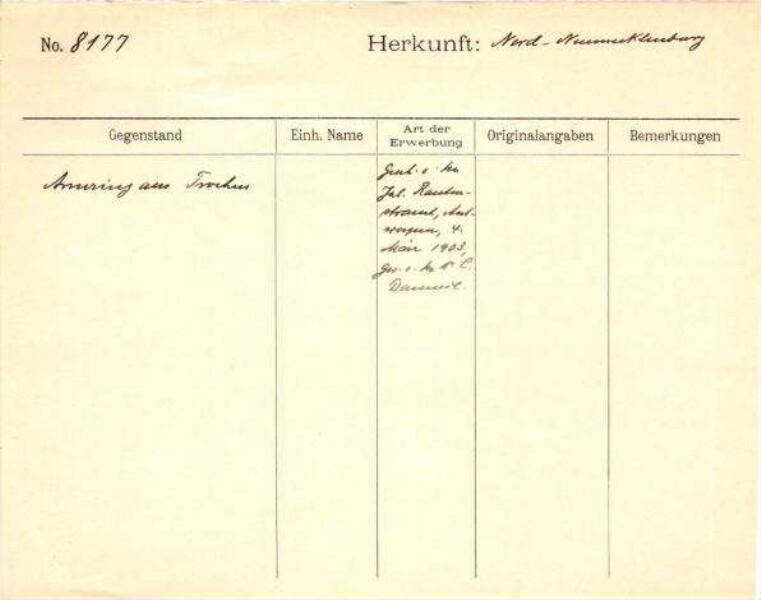 No. 8177
Herkunft: Nord-Neumecklenburg
Gegenstand
Einh. Name
Art der
Erwerbung
Originalangaben
Bemerkungen
Armring aus Trochus
Gesch. v. Hn
Jul. Rauten-
strauch, Ant-
werpen, 4.
März 1903,
ges. v. Hn Dr C.